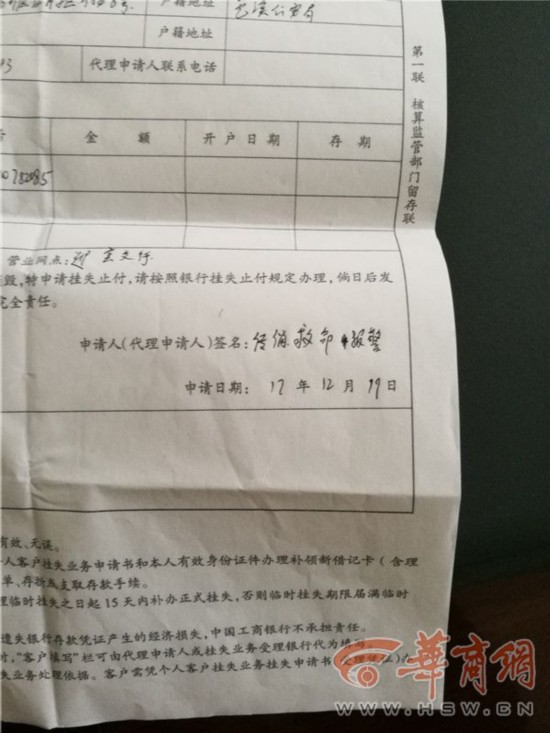 户籍地址
户籍地址
代理申请人联系电话
金 额 开户日期 存 期
第一联 核算监管部门留存联
营业网点:
毁,特申请挂失止付,请按照银行挂失止付规定办理,倘日后发
完全责任。
申请人(代理申请人)签名:传销救命 报警
申请日期: 17 年 12 月 19 日
有效、无误。
人客户挂失业务申请书和本人有效身份证件办理补领新借记卡(含理
单、存折或支取存款手续。
理临时挂失之日起15天内补办正式挂失,否则临时挂失期限届满临时
遗失银行存款凭证产生的经济损失,中国工商银行不承担责任。
时,“客户填写”栏可由代理申请人或挂失业务受理银行代为填写。
失业务处理依据。客户需凭个人客户挂失业务挂失申请书
華商網
WWW.HSW.CN